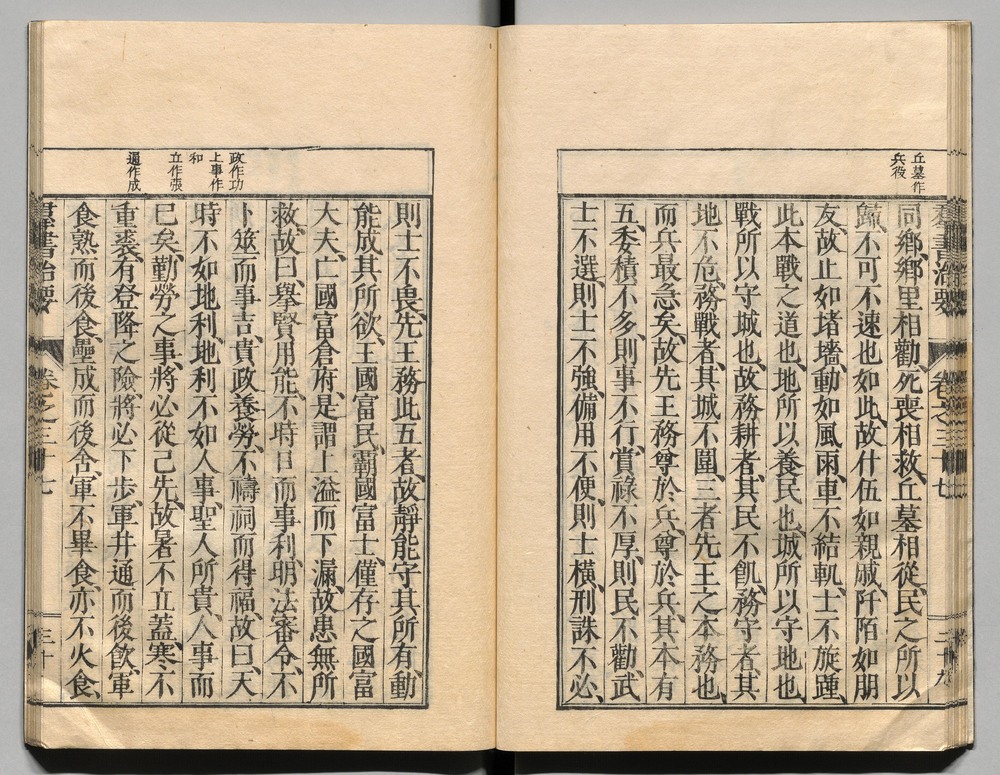 丘墓作
兵役
同鄉鄉里相勸死喪相救丘墓相從民之所以
歸不可不速也如此故什伍如親戚阡陌如朋
友故止如堵墻動如風雨車不結軌士不旋踵
此本戰之道也地所以養民也城所以守地也
戰所以守城也故務耕者其民不飢務守者其
地不危務戰者其城不圍三者先王之本務也
而兵最急矣故先王務尊於兵尊於兵其本有
五委積不多則事不行賞祿不厚則民不勸武
士不選則士不強備用不便則士橫刑誅不必
群書治要 卷之三十七 二十九
政作功
上事作
和
立作張
通作成
則士不畏先王務此五者故靜能守其所有動
能成其所欲王國富民霸國富士僅存之國富
大夫亡國富倉府是謂上溢而下漏故患無所
救故曰舉賢用能不時日而事利明法審令不
卜筮而事吉貴政養勞不禱祠而得福故曰天
時不如地利地利不如人事聖人所貴人事而
已矣勤勞之事將必從己先故暑不立蓋寒不
重裘有登降之險將必下步軍井通而後飲軍
食熟而後食壘成而後舍軍不畢食亦不火食
群書治要 卷之三十七 三十